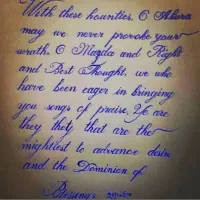 With these bounties, O Ahura
may we never provoke your
wrath, O Mazda and Right
and Best Thought, we who
have been eager in bringing
you songs of praise, Ye are
they that that are the
mightiest to advance desire
and the Dominion of
Blessings